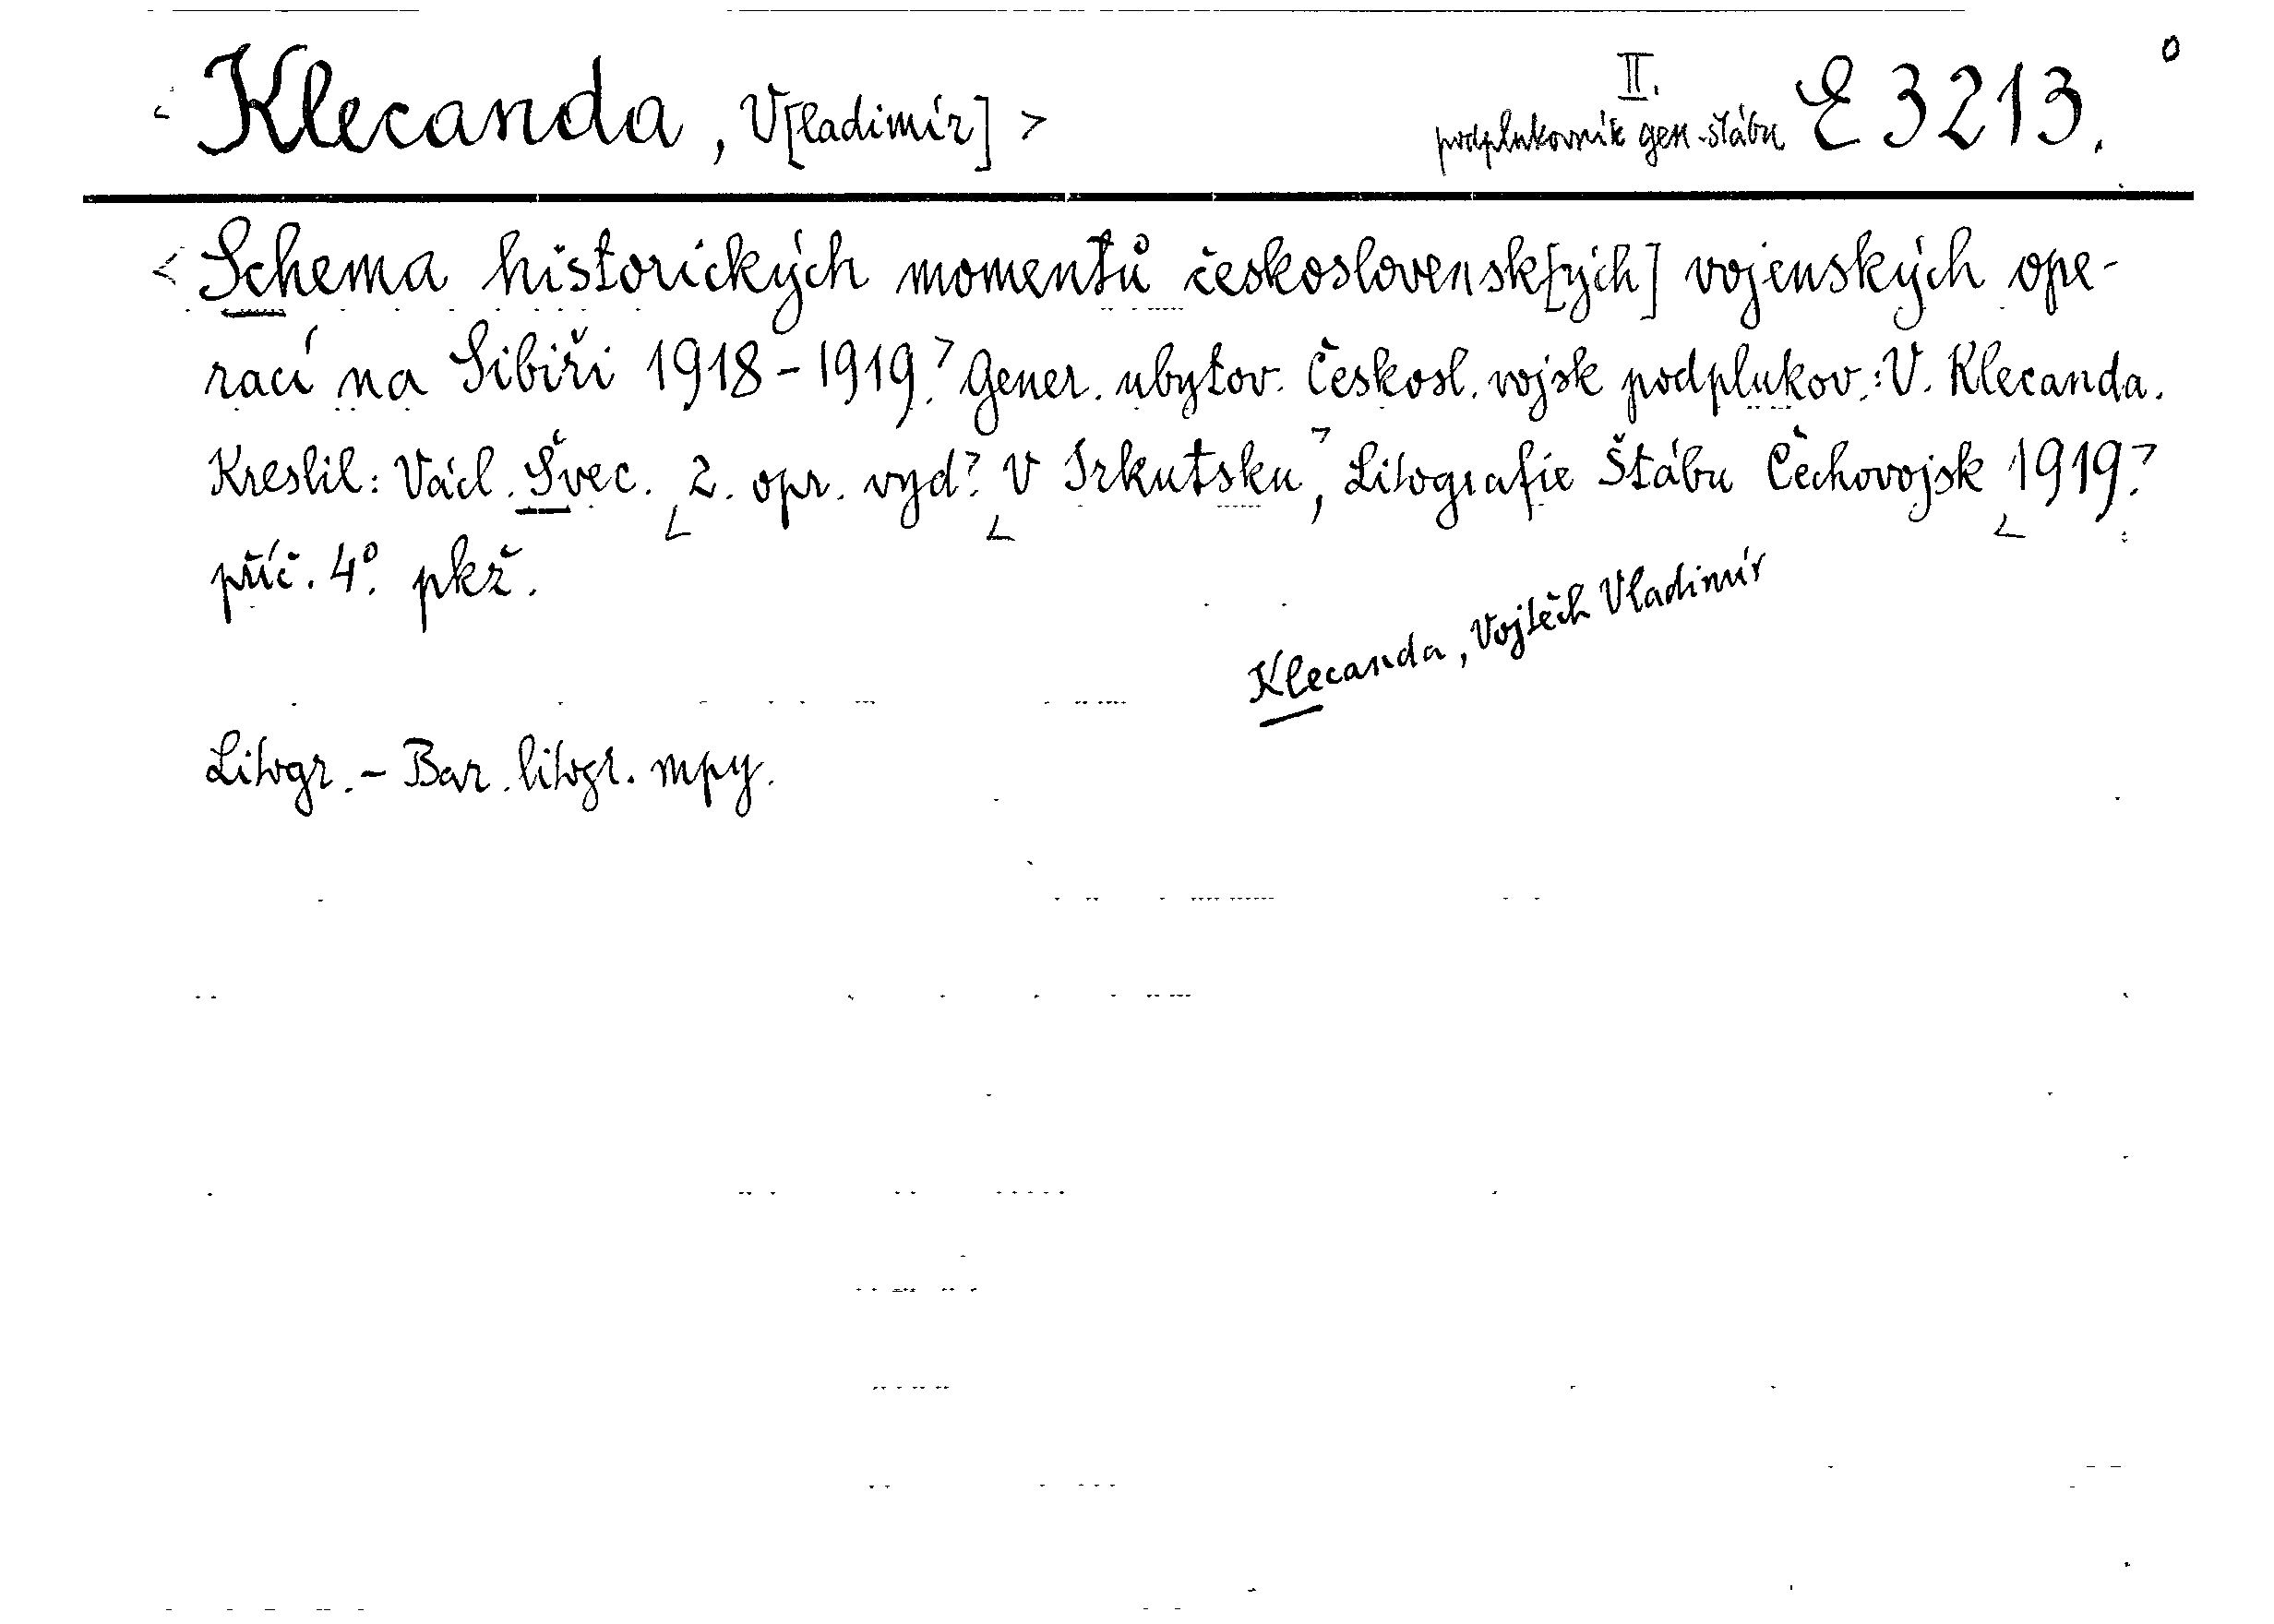 < Klecanda, V[ladimír] >
II.
podplukovník gen. štábu E 3213.
< Schema historických momentů československ[ých] vojenských ope-
rací na Sibiři 1918-1919.> Gener. ubytov. Českosl. vojsk podplukov.: V. Klecanda.
Kreslil: Václ. Švec. < 2. opr. vyd.> < V Irkutsku >, Litografie Štábu Čechovojsk < 1919.>
příč. 4º. pkž.
Klecanda, Vojtěch Vladimír
Litogr. - Bar. litogr. mpy.